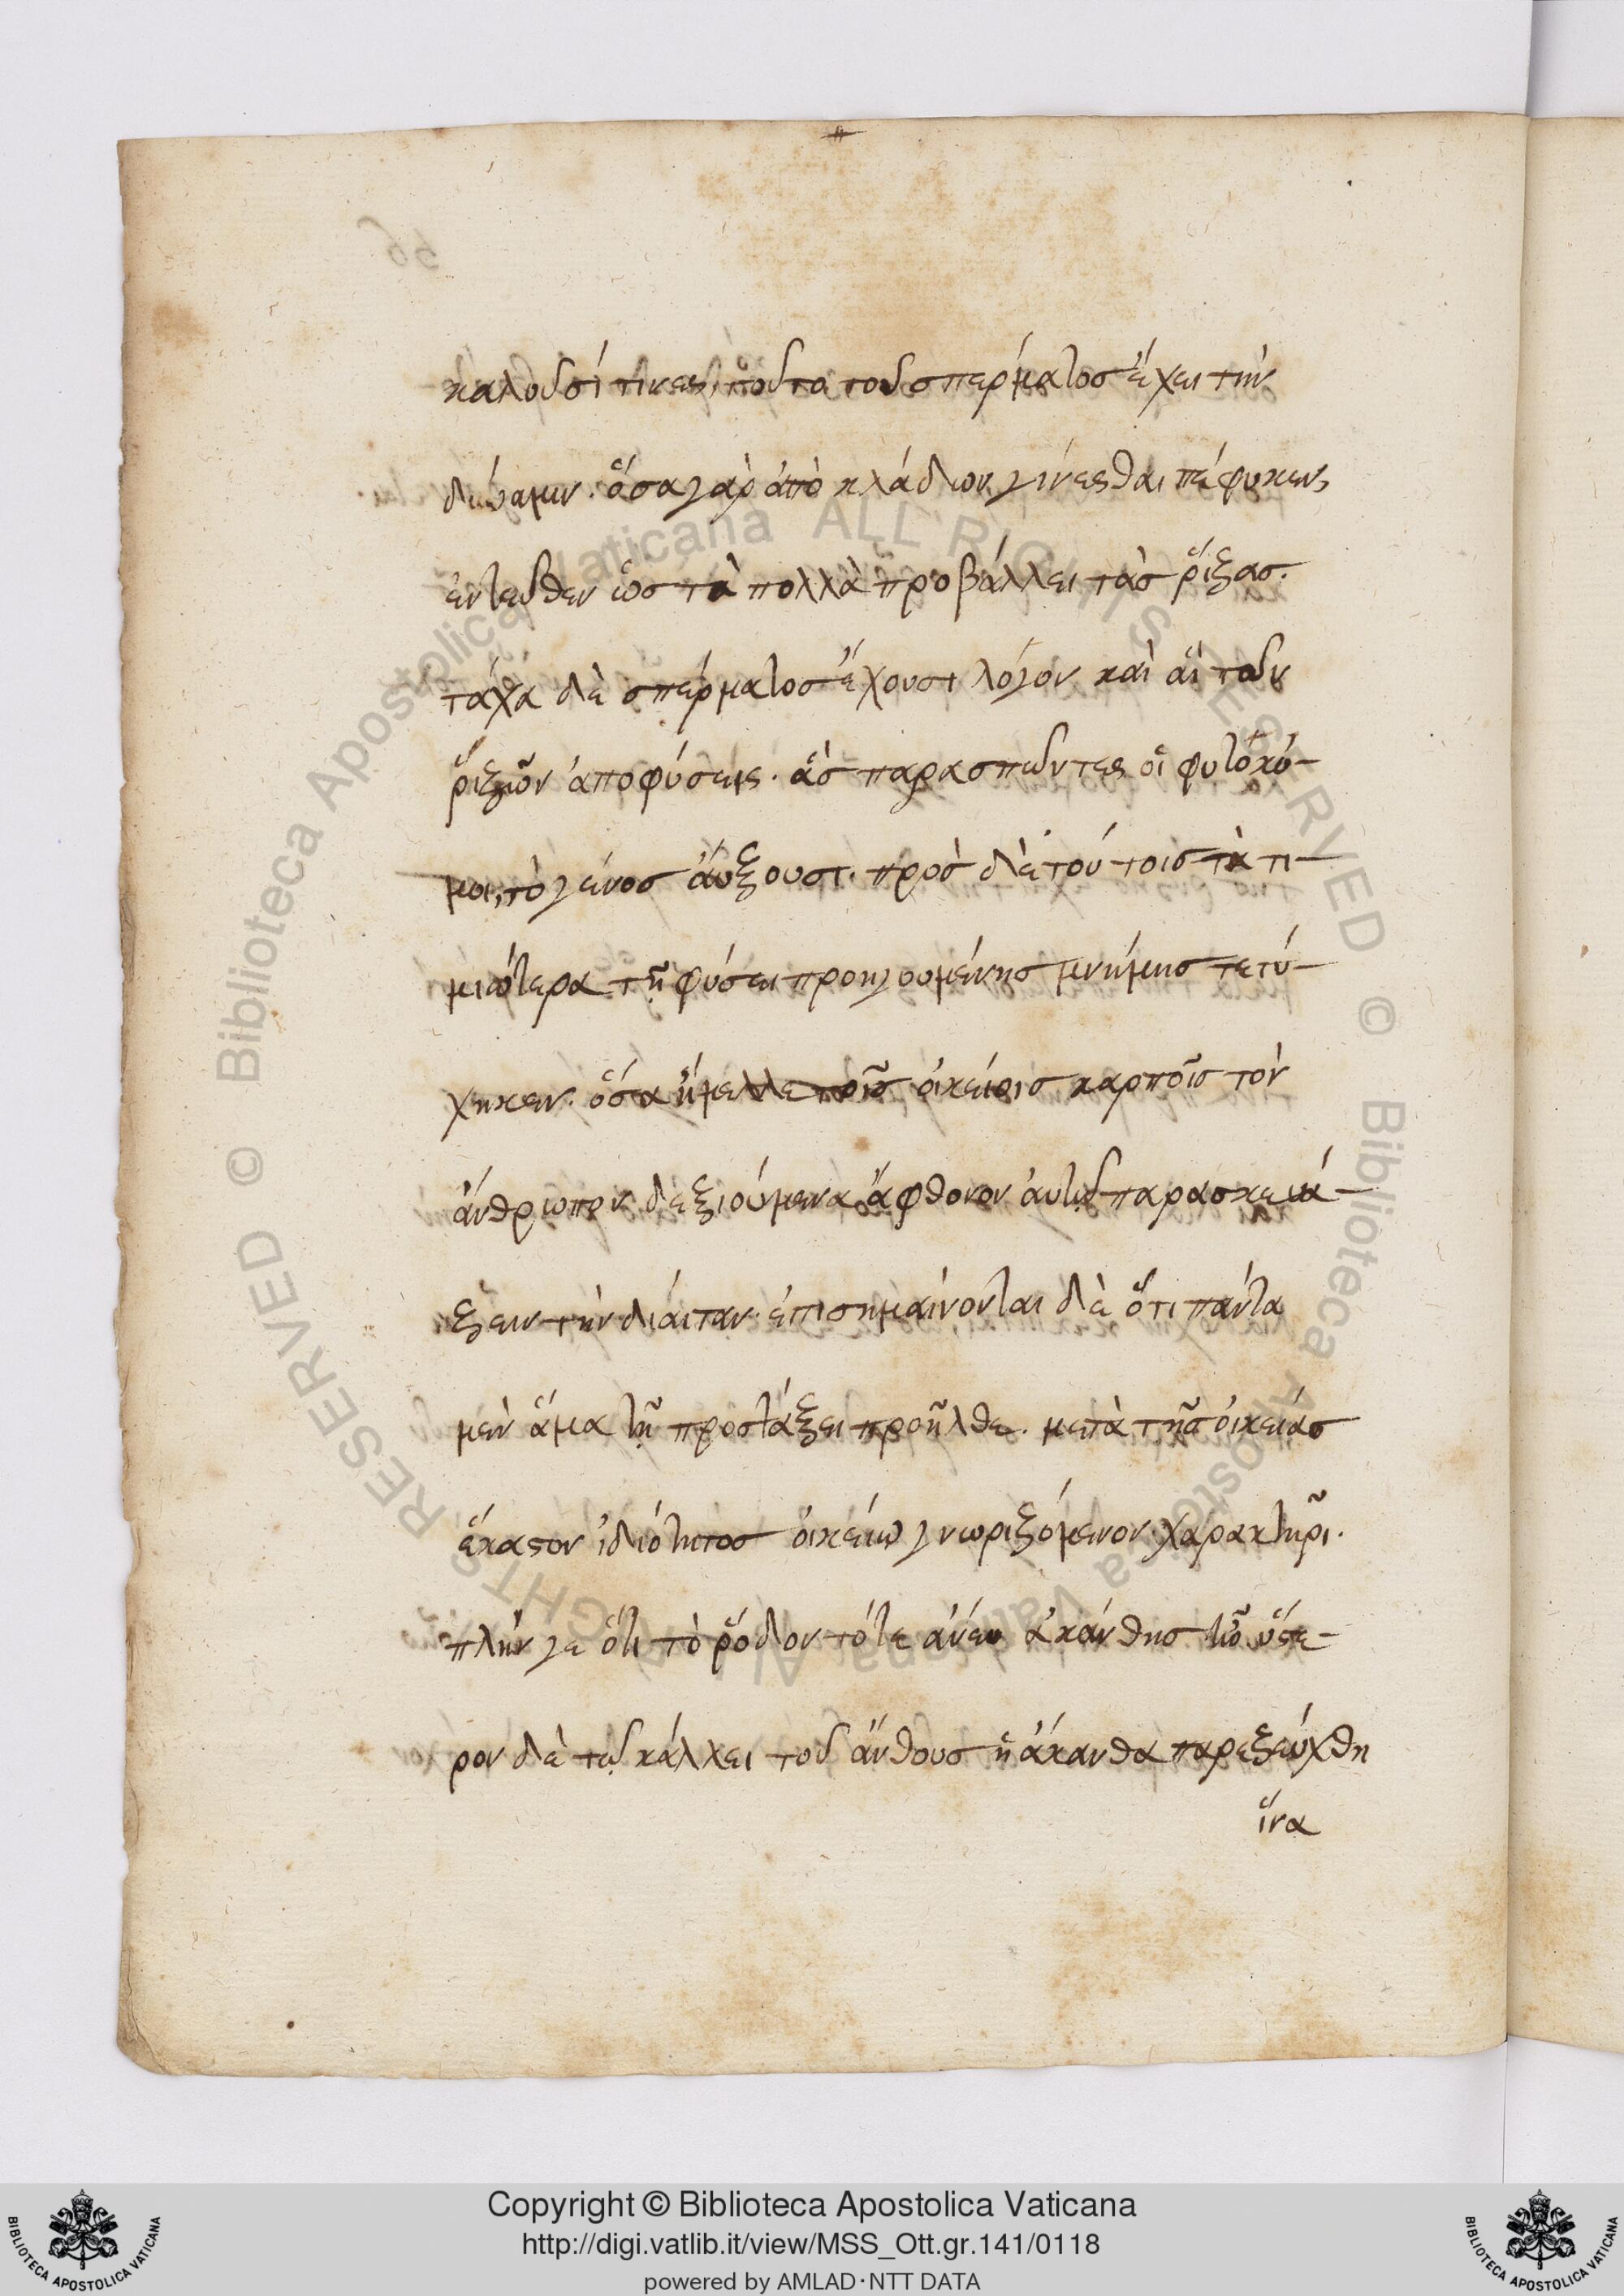 καλοῦσί τινες, τοῦτο τοῦ σπέρματος ἔχει τὴν
δύναμιν. ὅσα γὰρ ἀπὸ κλάδων γίνεσθαι πέφυκεν,
ἐντεῦθεν ὡς τὰ πολλὰ προβάλλει τὰς ῥίζας.
τάχα δὲ σπέρματος ἔχουσι λόγον καὶ ἁι τῶν
ῥιζῶν ἀποφύσεις. ἃς παρασπῶντες οἱ φυτοκό-
μοι, τὸ γένος ἄυξουσι. πρὸς δὲ τούτοις τὰ τι-
μιώτερα τῇ φύσει προηγουμένης μνήμης τετύ-
χηκεν. ὅσα ἤμελλε τοῖς ὀικείοις καρποῖς τὸν
ἄνθρωπον δεξιούμενα ἄφθονον ἀυτῷ παρασκευά-
ζειν τὴν δίαιταν. ἐπισημαίνονται δὲ ὅτι πάντα
μὲν ἅμα τῇ προστάξει προῆλθε. μετὰ τῆς ὀικείας
ἕκαστον ἰδιότητος ὀικείω γνωριζόμενον χαρακτῆρι.
πλήν γε ὅτι τὸ ῥόδον τότε ἄνευ ἀκάνθης ἦν ὕστε-
ρον δὲ τῷ κάλλει τοῦ ἄνθους ἡ ἄκανθα παρεζεύχθη
ἵνα
Copyright © Biblioteca Apostolica Vaticana
http://digi.vatlib.it/view/MSS_Ott.gr.141/0118
powered by AMLAD·NTT DATA